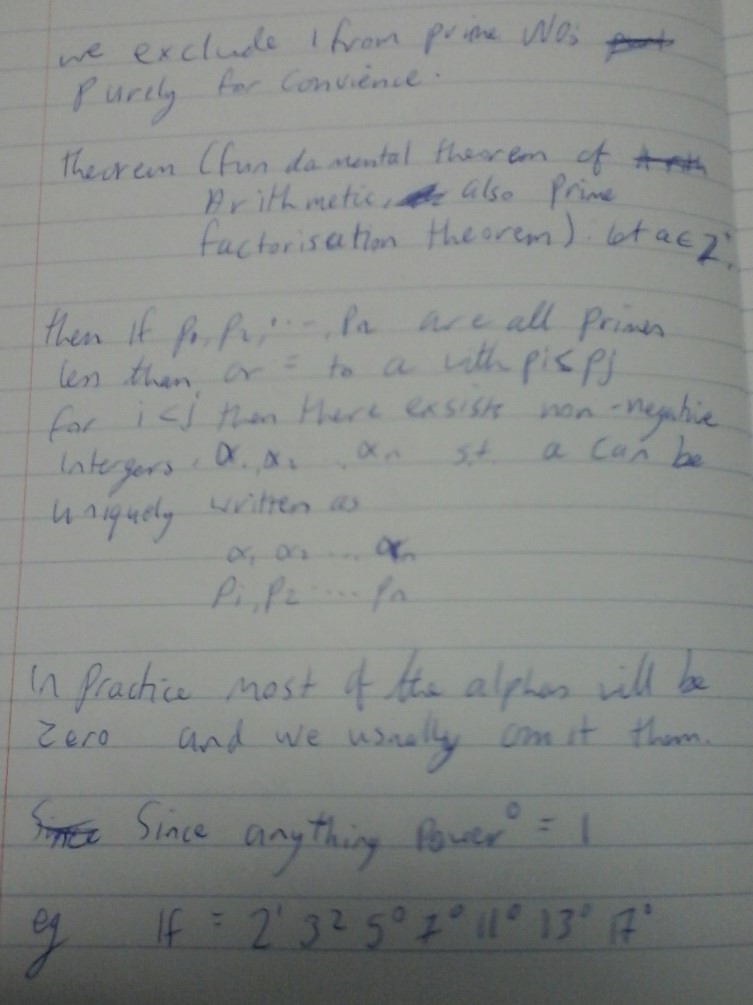 we exclude 1 from prime NOs
Purely for convience.
theorem (fundamental theorem of
Arithmetic, also Prime
factorisation theorem). let a ∈ Z
then if p₁, p₂, ..., pₙ are all primes
less than or = to a with pi ≤ pj
for i < j then there exsists non-negative
Intergers, α₁ α₂ .. αₙ s.t a can be
uniquely written as
α₁ α₂ ... αₙ
P₁, P₂ .... Pₙ
In Practice most of the alphas will be
Zero and we usually omit them.
Since anything Power⁰ = 1
eg 1f = 2¹ 3² 5⁰ 7⁰ 11⁰ 13⁰ 17⁰